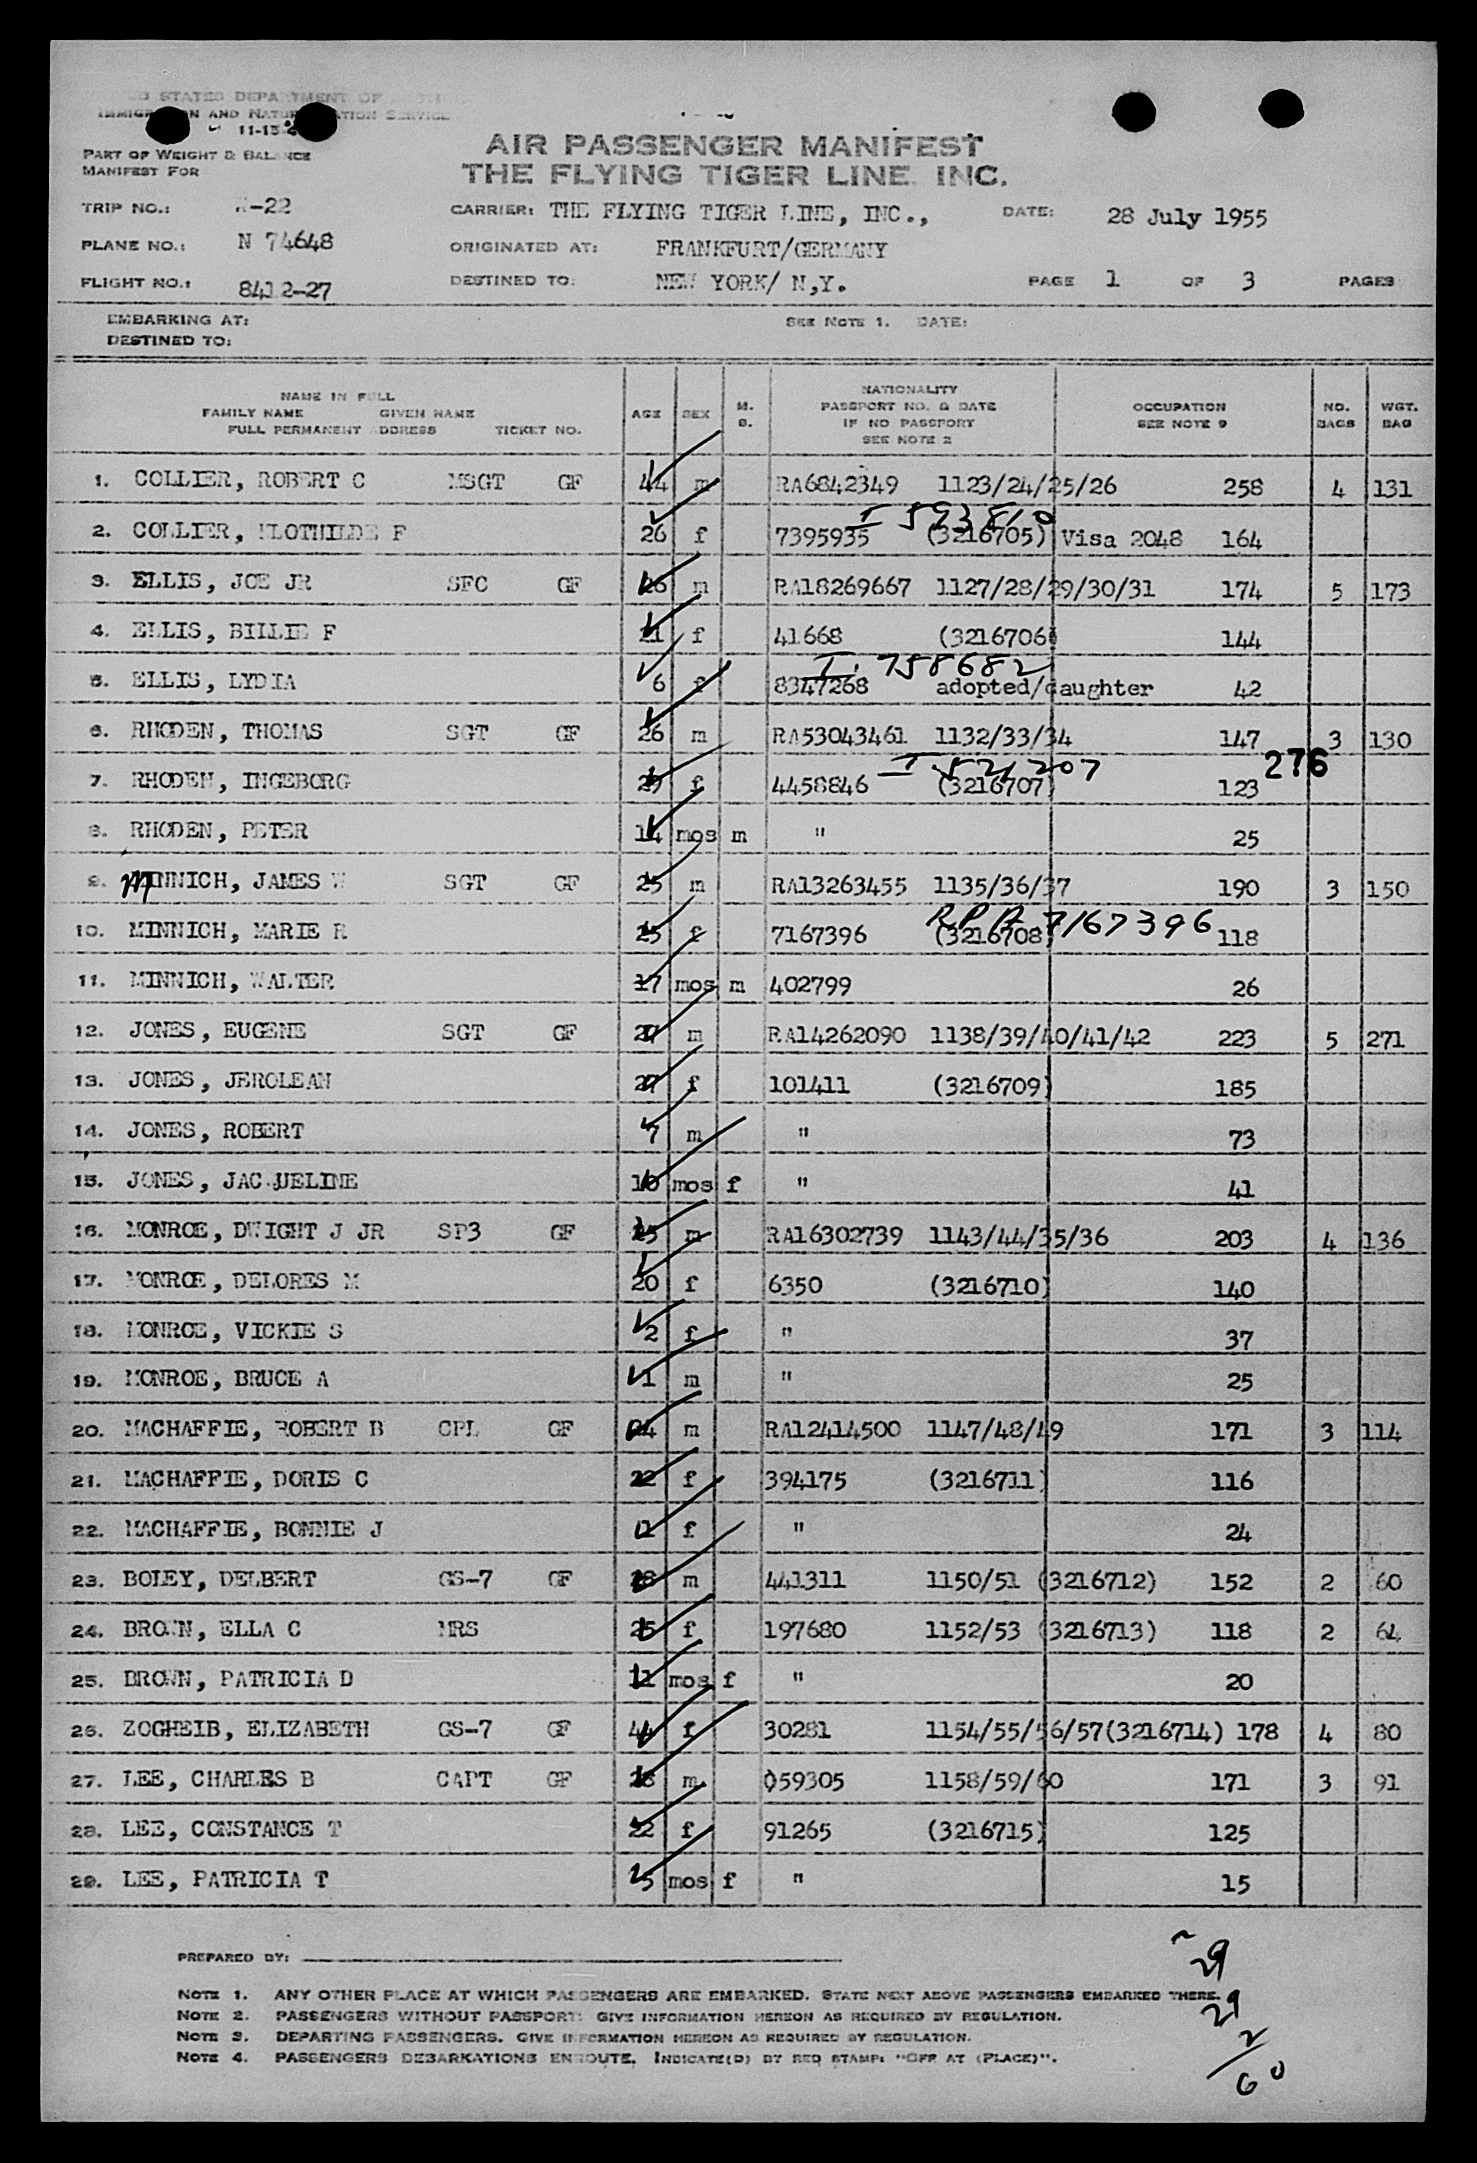 UNITED STATES DEPARTMENT OF JUSTICE
IMMIGRATION AND NATURALIZATION SERVICE
11-15
PART OF WEIGHT & BALANCE
MANIFEST FOR
AIR PASSENGER MANIFEST
THE FLYING TIGER LINE, INC.
TRIP NO.: -22 CARRIER: THE FLYING TIGER LINE, INC., DATE: 28 July 1955
PLANE NO.: N 74648 ORIGINATED AT: FRANKFURT/GERMANY
FLIGHT NO.: 8412-27 DESTINED TO: NEW YORK/ N,Y. PAGE 1 OF 3 PAGES
EMBARKING AT: SEE NOTE 1. DATE:
DESTINED TO:
NAME IN FULL
FAMILY NAME GIVEN NAME
FULL PERMANENT ADDRESS TICKET NO. AGE SEX M. S. NATIONALITY PASSPORT NO. & DATE IF NO PASSPORT SEE NOTE 2 OCCUPATION SEE NOTE 9 NO. BAGS WGT. BAG
1. COLLIER, ROBERT C MSGT GF 44 m RA6842349 1123/24/25/26 258 4 131
I 593810
2. COLLIER, CLOTHILDE F 26 f 7395935 (3216705) Visa 2048 164
3. ELLIS, JOE JR SFC GF 26 m RA18269667 1127/28/29/30/31 174 5 173
4. ELLIS, BILLIE F 21 f 41668 (3216706) 144
I. 758682
5. ELLIS, LYDIA 6 f 8347268 adopted/daughter 42
6. RHODEN, THOMAS SGT GF 26 m RA53043461 1132/33/34 147 3 130
I 521207 276
7. RHODEN, INGEBORG 29 f 4458846 (3216707) 123
8. RHODEN, PETER 14 mos m " 25
9. MINNICH, JAMES W SGT GF 25 m RA13263455 1135/36/37 190 3 150
RPA 7167396
10. MINNICH, MARIE R 25 f 7167396 (3216708) 118
11. MINNICH, WALTER 17 mos m 402799 26
12. JONES, EUGENE SGT GF 27 m RA14262090 1138/39/40/41/42 223 5 271
13. JONES, JEROLEAN 27 f 101411 (3216709) 185
14. JONES, ROBERT 7 m " 73
15. JONES, JACQUELINE 10 mos f " 41
16. MONROE, DWIGHT J JR SP3 GF 25 m RA16302739 1143/44/35/36 203 4 136
17. MONROE, DELORES M 20 f 6350 (3216710) 140
18. MONROE, VICKIE S 2 f " 37
19. MONROE, BRUCE A 1 m " 25
20. MACHAFFIE, ROBERT B CPL GF 24 m RA12414500 1147/48/49 171 3 114
21. MACHAFFIE, DORIS C 22 f 394175 (3216711) 116
22. MACHAFFIE, BONNIE J 1 f " 24
23. BOLEY, DELBERT GS-7 GF 28 m 441311 1150/51 (3216712) 152 2 60
24. BROWN, ELLA C MRS 25 f 197680 1152/53 (3216713) 118 2 64
25. BROWN, PATRICIA D 11 mos f " 20
26. ZOGHEIB, ELIZABETH GS-7 GF 44 f 30281 1154/55/56/57(3216714) 178 4 80
27. LEE, CHARLES B CAPT GF 28 m 059305 1158/59/60 171 3 91
28. LEE, CONSTANCE T 22 f 91265 (3216715) 125
29. LEE, PATRICIA T 5 mos f " 15
29
29
2
60
PREPARED BY:
NOTE 1. ANY OTHER PLACE AT WHICH PASSENGERS ARE EMBARKED. STATE NEXT ABOVE PASSENGERS EMBARKED THERE.
NOTE 2. PASSENGERS WITHOUT PASSPORT: GIVE INFORMATION HEREON AS REQUIRED BY REGULATION.
NOTE 3. DEPARTING PASSENGERS. GIVE INFORMATION HEREON AS REQUIRED BY REGULATION.
NOTE 4. PASSENGERS DEBARKATIONS ENROUTE. INDICATE(D) BY RED STAMP: "OFF AT (PLACE)".